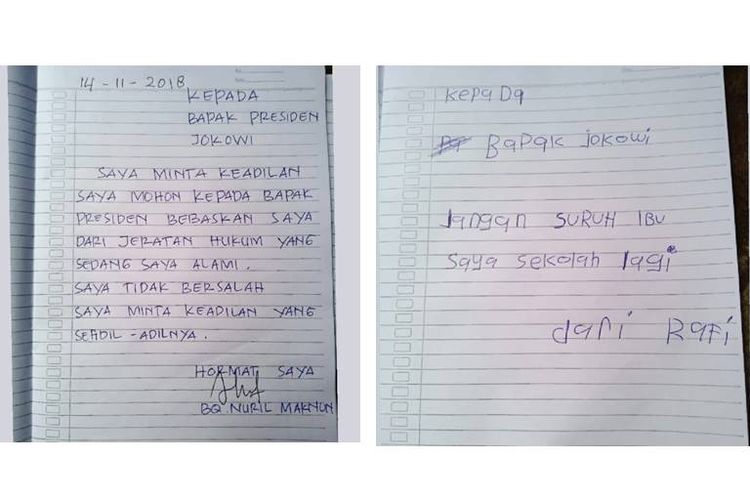 14-11-2018
KEPADA
BAPAK PRESIDEN
JOKOWI
SAYA MINTA KEADILAN
SAYA MOHON KEPADA BAPAK
PRESIDEN BEBASKAN SAYA
DARI JERATAN HUKUM YANG
SEDANG SAYA ALAMI.
SAYA TIDAK BERSALAH
SAYA MINTA KEADILAN YANG
SEADIL-ADILNYA.
HORMAT SAYA
BQ NURIL MAKNUN
KepaDa
Bapak jokowi
Jangan SURUH IBU
Saya Sekolah lagi
dari Rafi